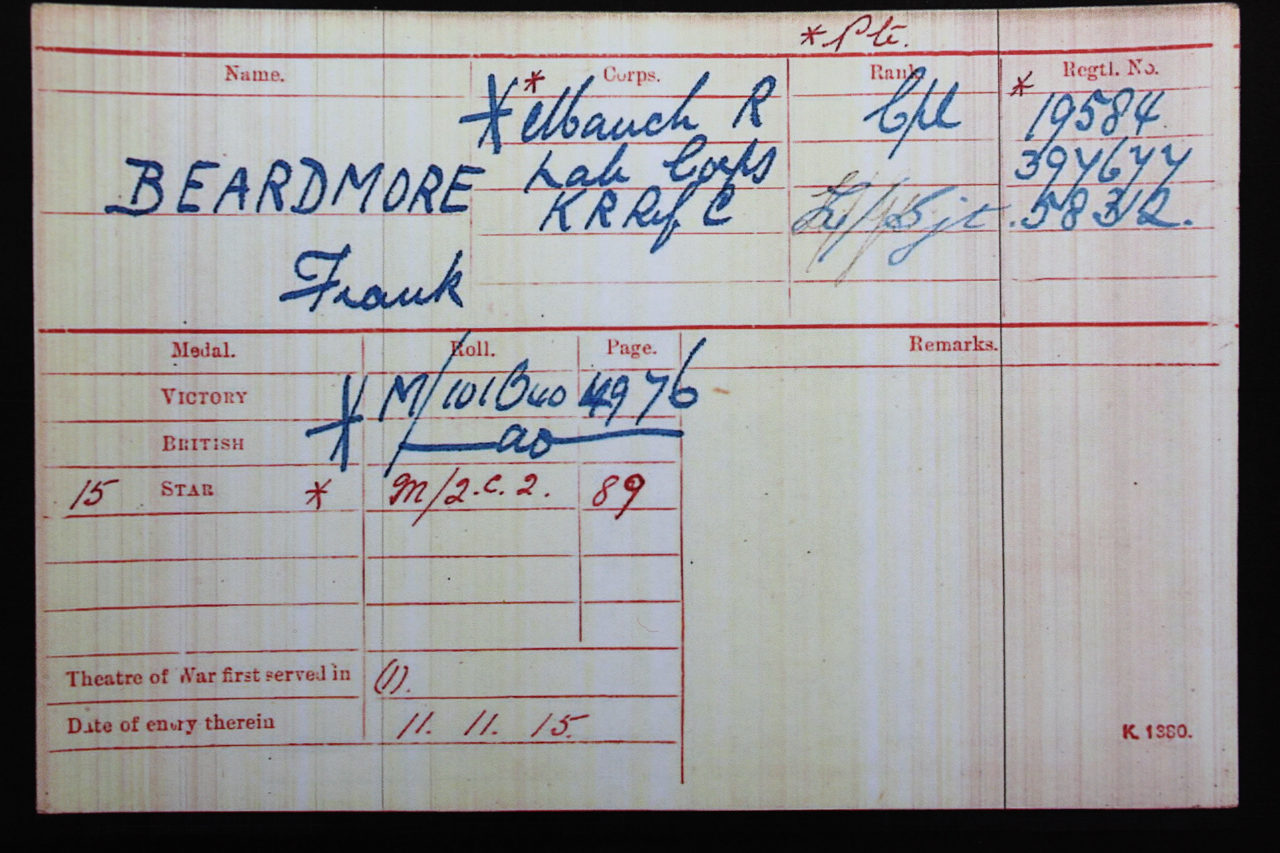 * Pte.
Name. Corps. Rank Regtl. No.
* * Manch R Cpl * 19584
BEARDMORE Lab Corps 394677
K R Rif C /Sjt 58312.
Frank
Medal. Roll. Page. Remarks.
VICTORY M/101B40 4976
BRITISH do
15 STAR * M/2.C.2. 89
Theatre of War first served in (1).
Date of entry therein 11. 11. 15.
K. 1380.